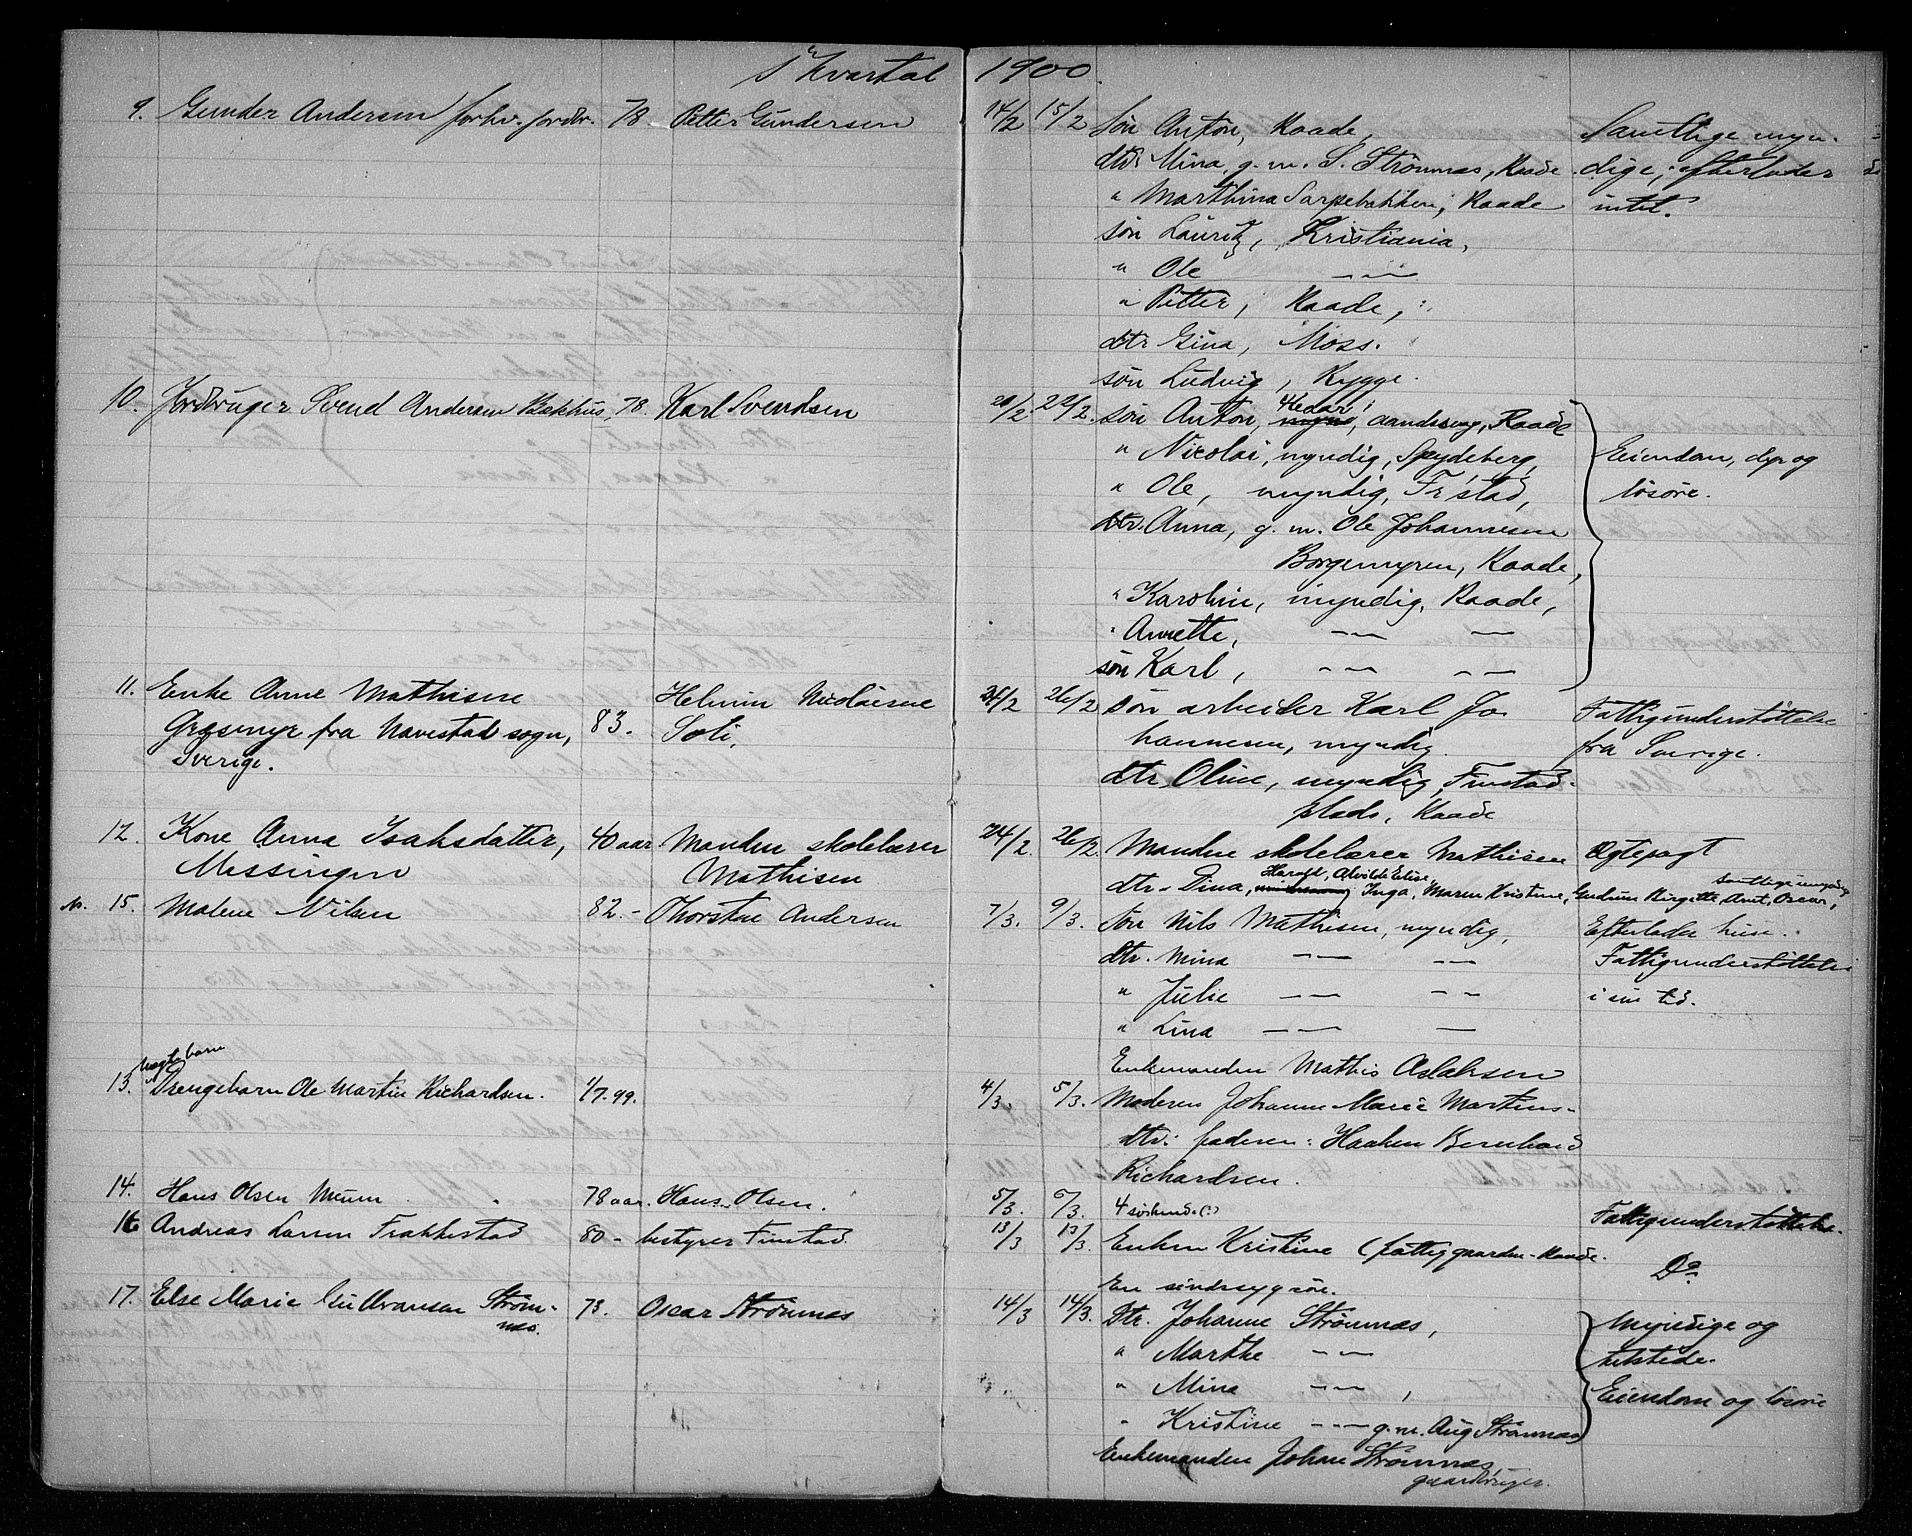 1 Kvartal 1900.
9. Gunder Andersen forhv. jordbr. 78. Petter Gundersen 14/2 15/2 Søn Anton, Raade, Samtlige myn-
dtr. Mina, g. m. S. Strømnæs, Raade dige; efterlader
" Marthina Sarpebakken, Raade intet.
søn Lauritz, Kristiania,
" Ole — —
" Petter, Raade,
dtr Gina, Moss.
søn Ludvig, Rygge.
10. Jordbruger Svend Andersen Bakhus, 78. Karl Svendsen 20/2 22/2. søn Anton, aandssvag, Raade
" Nicolai, myndig, Spydeberg, Eiendom, dyr og
" Ole, myndig, Fr'stad, løsøre.
dtr. Anna, g. m. Ole Johannesen
Borgemyren, Raade,
" Karoline, myndig, Raade,
" Annette, — — —
søn Karl, — — — —
11. Enke Anne Mathisen Helmin Nicolaisen 24/2 26/2 søn arbeider Karl Jo- Fattigunderstøttelse
Græsmyr fra Navestad sogn, 83. Soli, hannesen, myndig. fra Sverige.
Sverige. dtr. Oline, myndig, Finstad-
plads, Raade
12. Kone Anna Isaksdatter, 40 aar. Manden skolelærer 24/2. 26/2. Manden skolelærer Mathisen Ægtepagt
Messingen Mathisen Harald, Alvilde Elise, samtlige umyndig
dtr. Dina, Inga, Maren Kristine, Gudrun Birgitte, Arnt, Oscar,
N. 15. Malene Nilsen 82.- Thorsten Andersen 7/3. 9/3. Søn Nils Mathisen, myndig, Efterlader huse.
dtr. Mina — — — — Fattigunderstøttelse
" Julie — — — — i sin tid.
" Lina — — —
Enkemanden Mathis Aslaksen
uægte barn
13. Drengebarn Ole Martin Richardsen. 1/7.99. 4/3. 5/3. Moderen Johanne Marie Martins-
dtr. faderen: Haaken Bernhard
Richardsen.
14. Hans Olsen Muum 78 aar. Hans Olsen. 5/3. 6/3. 4 søskende (:) Fattigunderstøttelse.
16 Andreas Larsen Frakkestad 80 - bestyrer Finstad 13/3 13/3. Enken Kristine (fattiggaarden - Raade. Do.
En sindssyg søn.
17. Else Marie Gulbransen Strøm- 73. Oscar Strømnæs 14/3 14/3. Dtr. Johanne Strømnæs, Myndige og
næs. " Marthe — — tilstede.
" Mina — — , Eiendom og løsøre
" Kristine — — g. m. Aug Strømnæs
Enkemanden Johan Strømnæs,
gaardbruger.